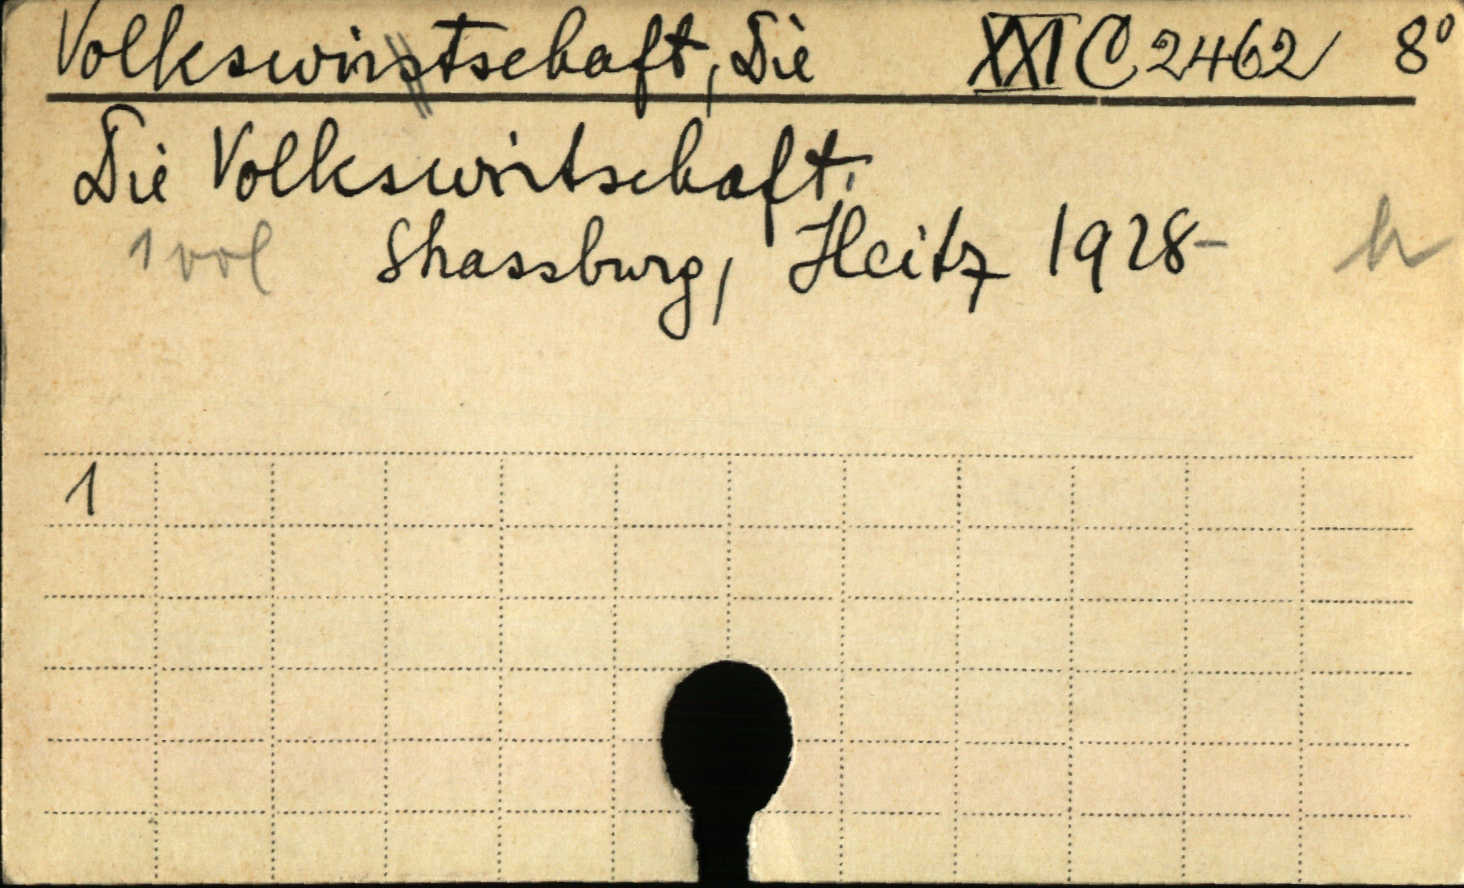 Volkswirtschaft, Die XXI C 2462 8°
Die Volkswirtschaft.
1 vol Strassburg, Heitz 1928-
1